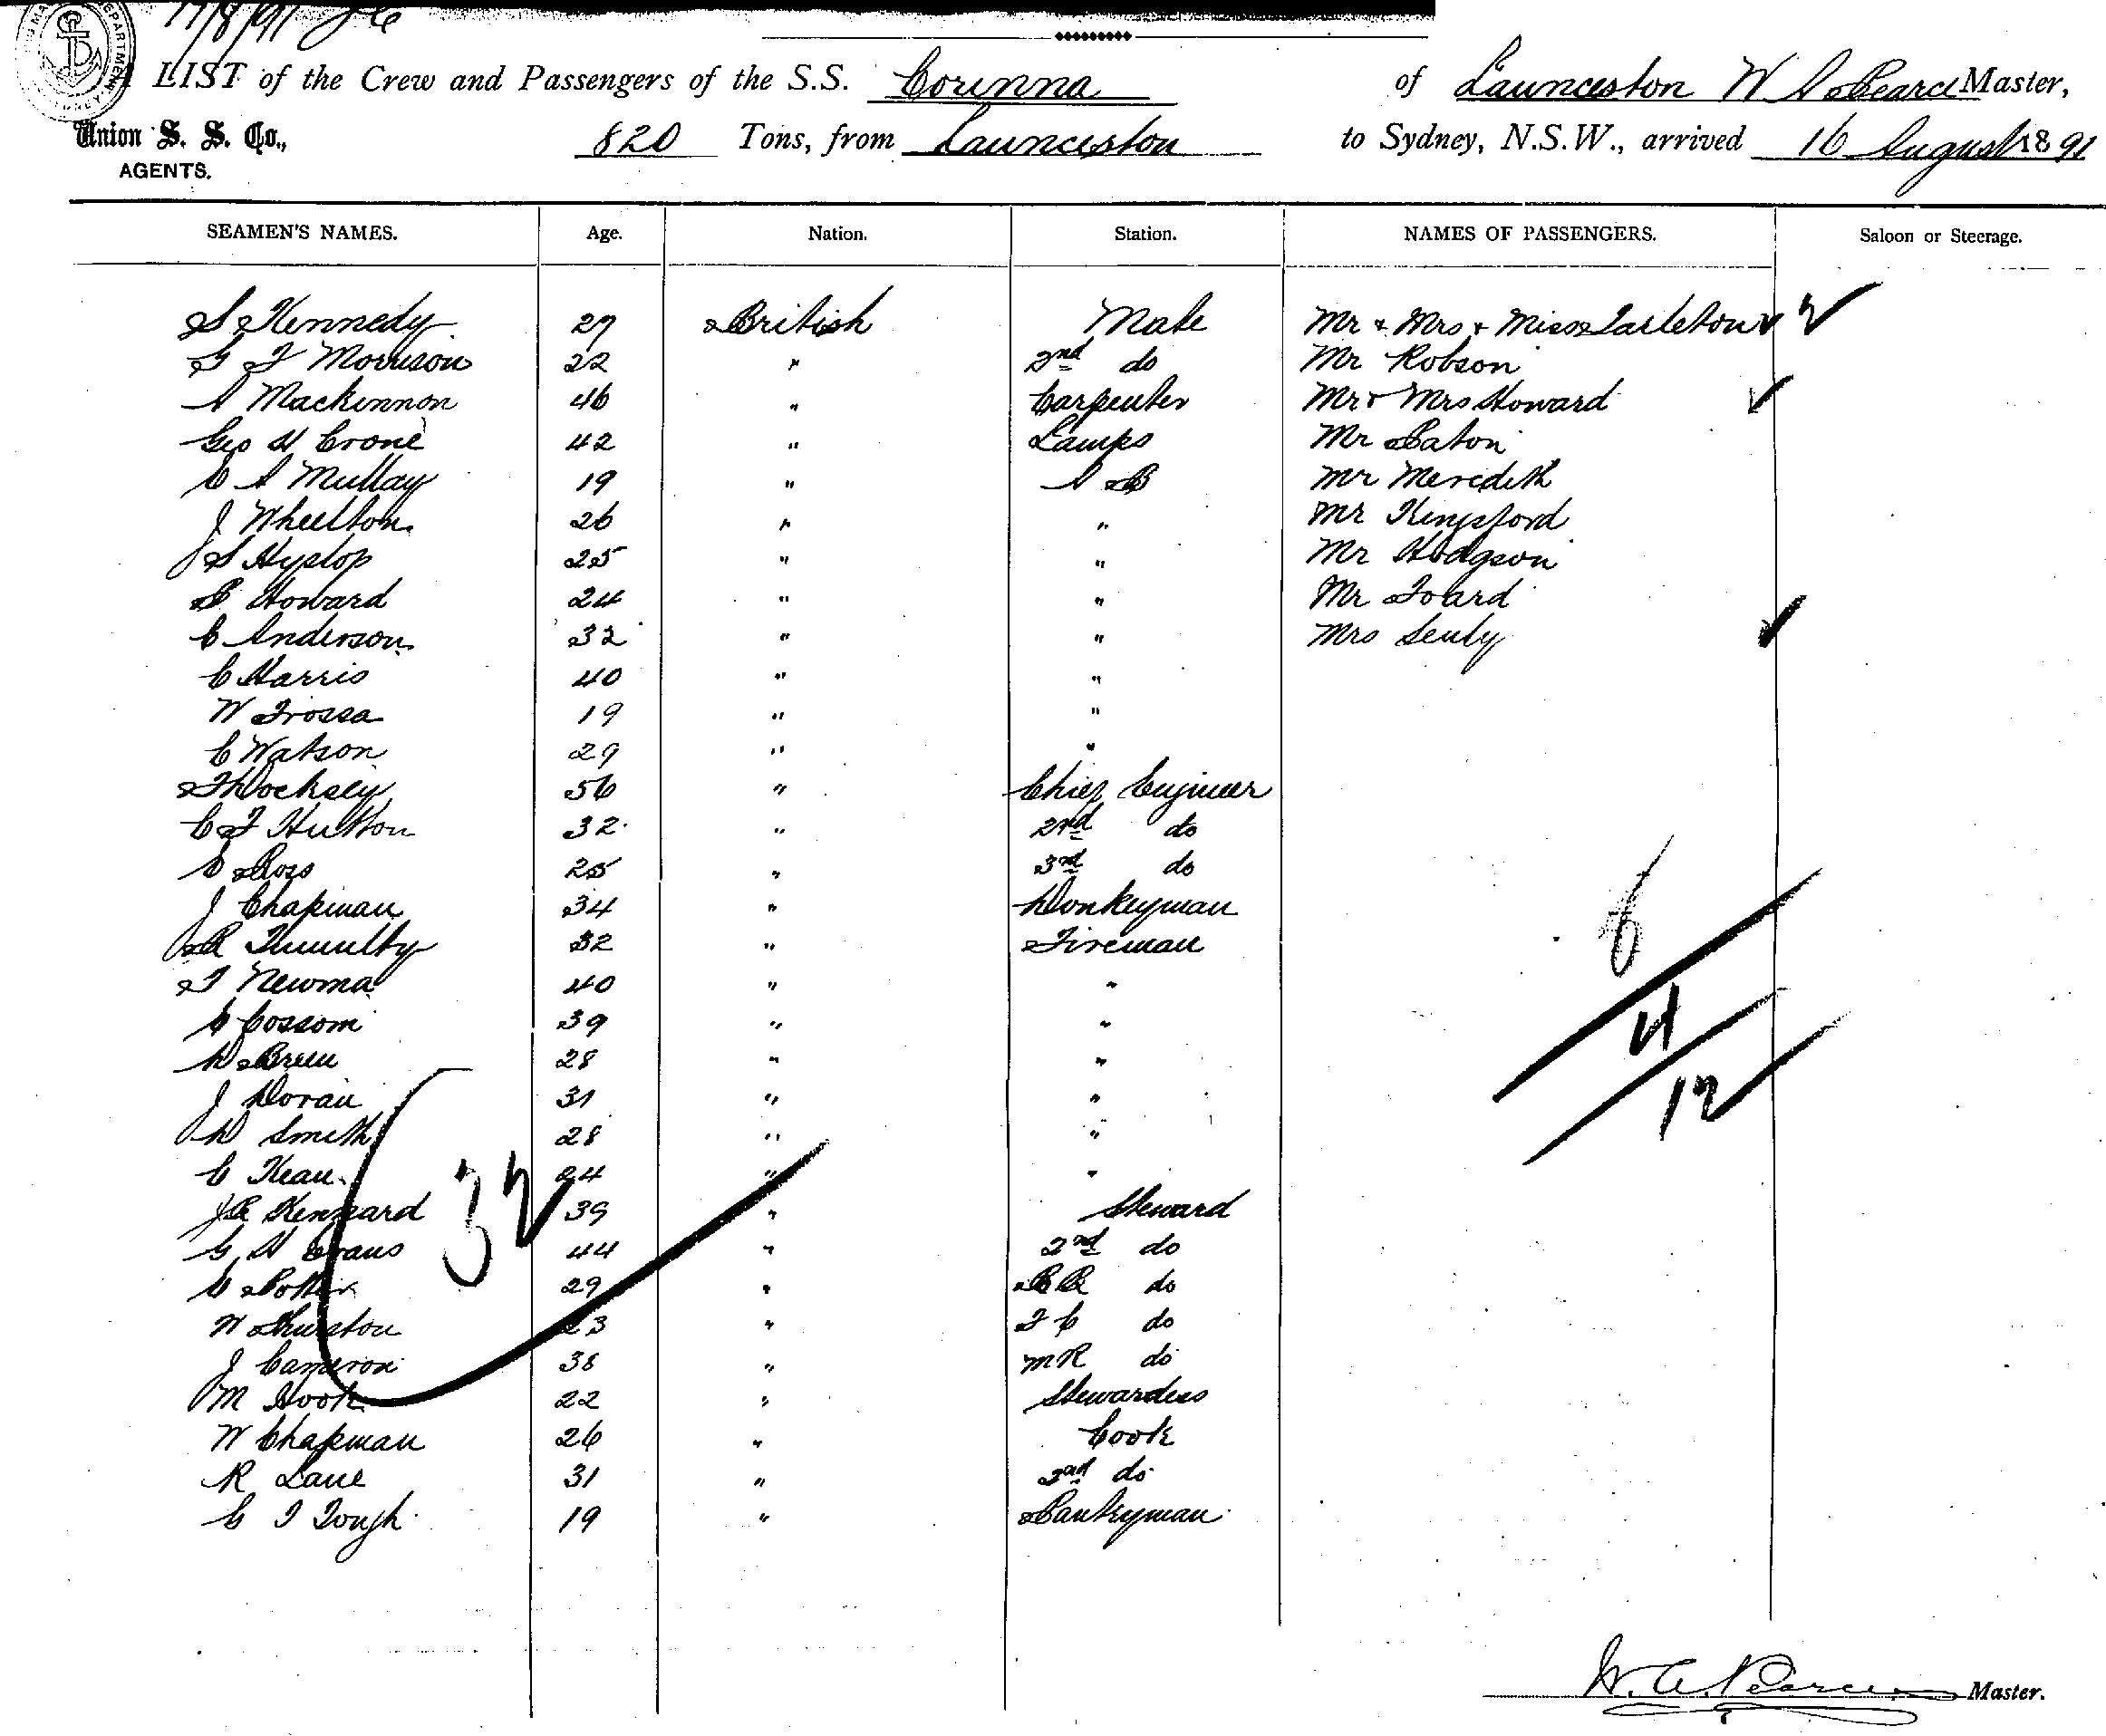 17/8/91
A LIST of the Crew and Passengers of the S.S. Corinna of Launceston W A Pearce Master,
Union S. S. Co., 820 Tons, from Launceston to Sydney, N.S.W., arrived 16 August 1891
AGENTS.
SEAMEN'S NAMES. Age. Nation. Station. NAMES OF PASSENGERS. Saloon or Steerage.
S Kennedy 27 British Mate Mr & Mrs & Miss Tarleton
G F Morrison 22 " 2nd do Mr Robson
A Mackinnon 46 " Carpenter Mr & Mrs Howard
Geo H Crone 42 " Lamps Mr Paton
E A Mullay 19 " A B Mr Meredith
J Wheelton 26 " " Mr Kingsford
J S Hyslop 25 " " Mr Hodgson
Howard 24 " " Mr Foard
C Anderson 32 " " Mrs
C Harris 40 " "
W Frossa 19 " "
C Watson 29 " "
T Docksey 56 " Chief Engineer
C F Hutton 32 " 2nd do
E Ross 25 " 3rd do
J Chapman 34 " Donkeyman
R 32 " Fireman
T Newma 40 " "
Cossom 39 " "
D Breen 28 " "
J Doran 31 " "
D Smith 28 " "
C Kean 24 " "
J R Kennard 39 " Steward
G H Evans 44 " 2nd do
E Potter 29 " B R do
W Thurston 23 " F C do
J Cameron 38 " M R do
M Hook 22 " Stewardess
W Chapman 26 " Cook
R Lane 31 " 2nd do
C T Tough 19 " Pantryman
32
6
4
12
W. A. Pearce Master.